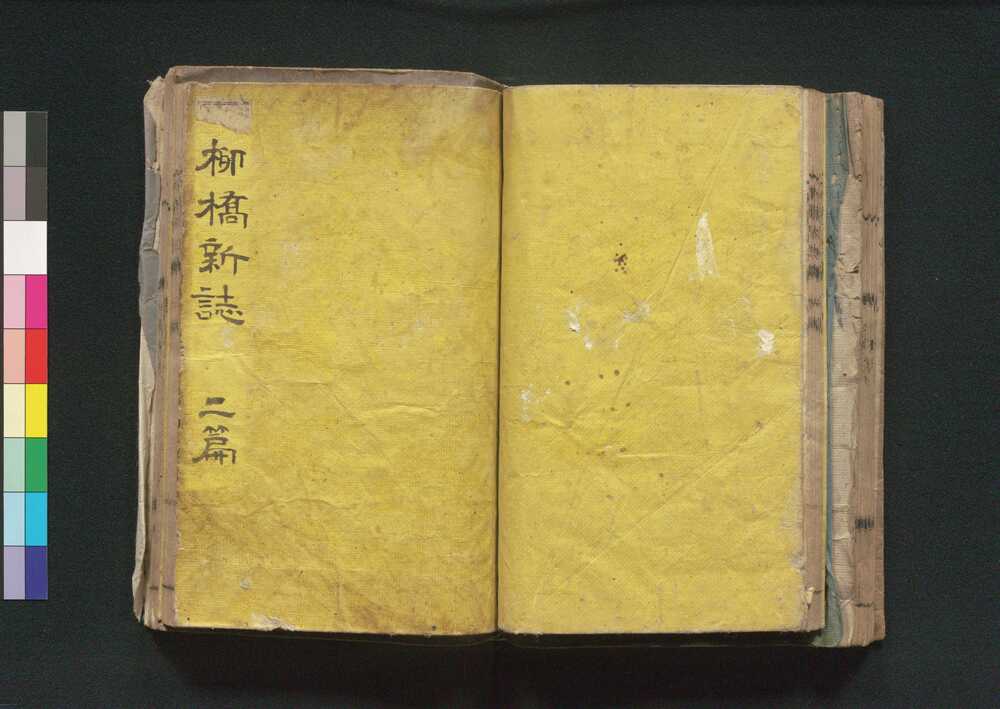 柳橋新誌 二篇